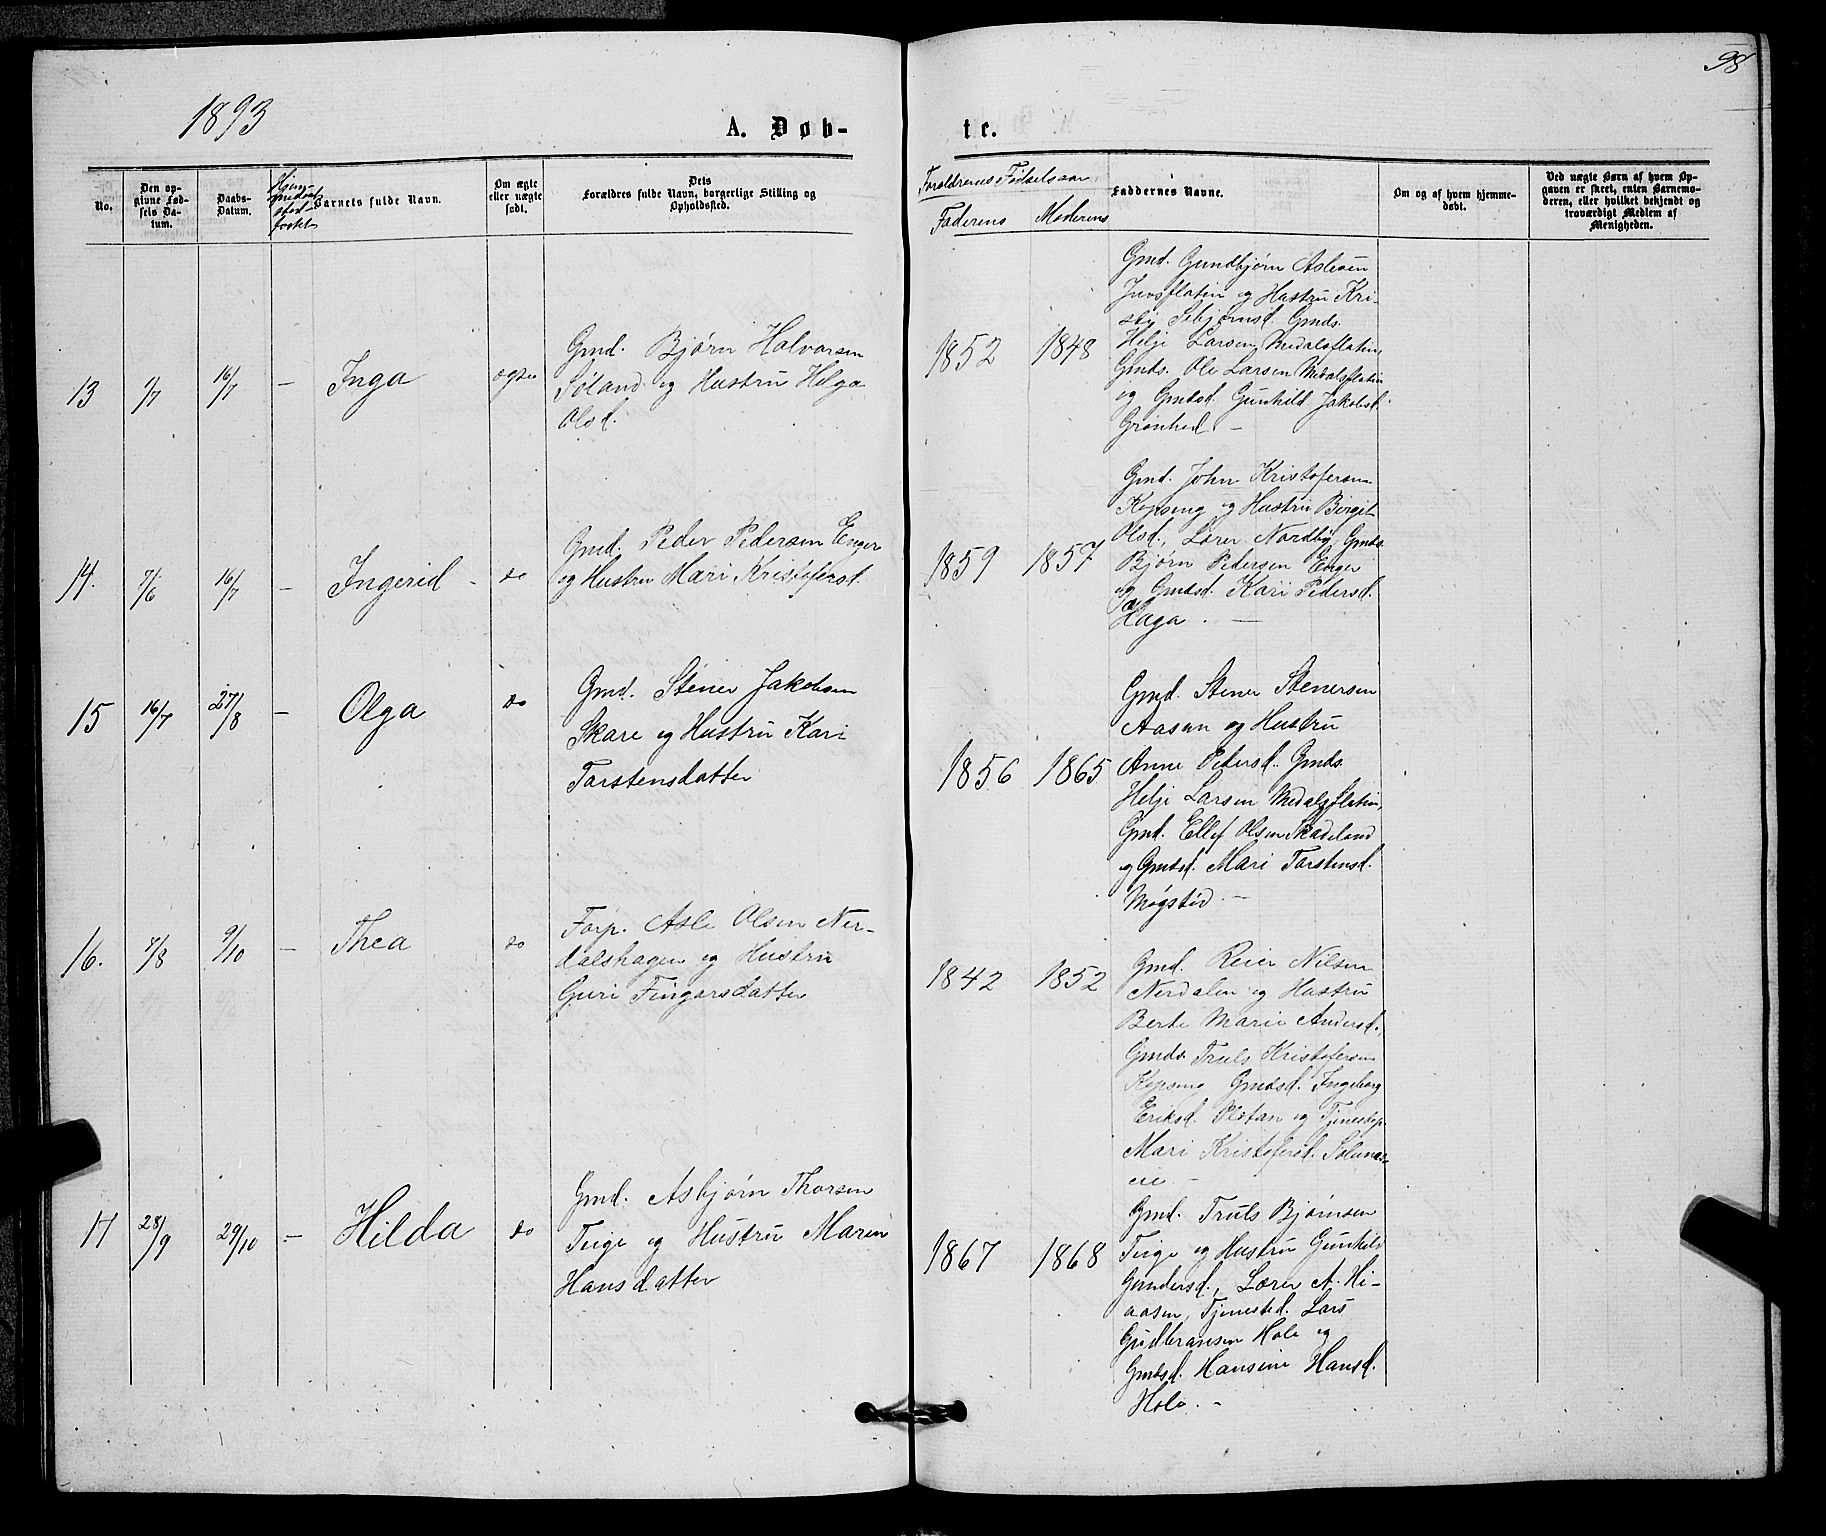 98
1893
A. Døb-
te.
No.
Den op-
givne Fød-
sels Da-
tum.
Daabs-
Datum.
Barnets fulde Navn.
Om ægte
eller uægte
født.
Dets
Forældres fulde Navn, borgerlige Stilling og
Opholdssted.
Forældrenes Fødselsaar
Faderens Moderens
Faddernes Navne.
Om og af hvem hjemme-
døbt.
Ved uægte Børn af hvem Op-
gaven er skeet, enten Barnemo-
deren, eller hvilket bekjendt og
troværdigt Medlem af
Menigheden.
13
1/7
16/7
–
Inga
ægte
Gmd. Bjørn Halvorsen
Søland og Hustru Helga
Olsd.
1852
1848
Gmd. Gundbjørn Aslesen
Juvsflaten og Hustru Kri-
Gmds.
Helje Larsen Medalsflaten,
Gmds. Ole Larsen Medalsflaten
og Gmdsd. Gunhild Jakobsd.
Grønhed. –
14.
7/6
16/7
–
Ingerid
do
Gmd. Peder Pedersen Enger
og Hustru Mari Kristofersd.
1859
1857
Gmd. John Kristofersen
Kopseng og Hustru Birgit
Olsd., Lærer Nordby, Gmds.
Bjørn Pedersen Enger
og Gmdsd. Kari Pedersd.
Haga. –
15
16/7
27/8
–
Olga
do
Gmd. Stener Jakobsen
Skare og Hustru Kari
Torstensdatter
1856
1865
Gmd. Stener Stenersen
Aasen og Hustru
Anne Pedersd. Gmds.
Helje Larsen Medalsflaten,
Gmd. Ellef Olsen Skadeland
og Gmdsd. Mari Torstensd.
Møgsted. –
16.
7/8
9/10
–
Thea
do
Forp. Asle Olsen Ner-
dalshagen og Hustru
Guri Fingarsdatter
1842
1852
Gmd. Reier Nilsen
Nerdalen og Hustru
Berte Marie Andersd.
Gmds. Truls Kristofersen
Kopseng Gmdsd. Ingeborg
Eriksd. Plstan og Tjenestep.
Mari Kristofersd. Solumas-
eie –
17
28/9
29/10
–
Hilda
do
Gmd. Asbjørn Thorsen
Teige og Hustru Maren
Hansdatter
1867
1868
Gmd. Truls Bjørnsen
Teige og Hustru Gunhild
Gundersd., Lærer A. Hi-
aasen, Tjenested. Lars
Gudbransen Hole og
Gmdsd. Hansine Hansd.
Hole. –